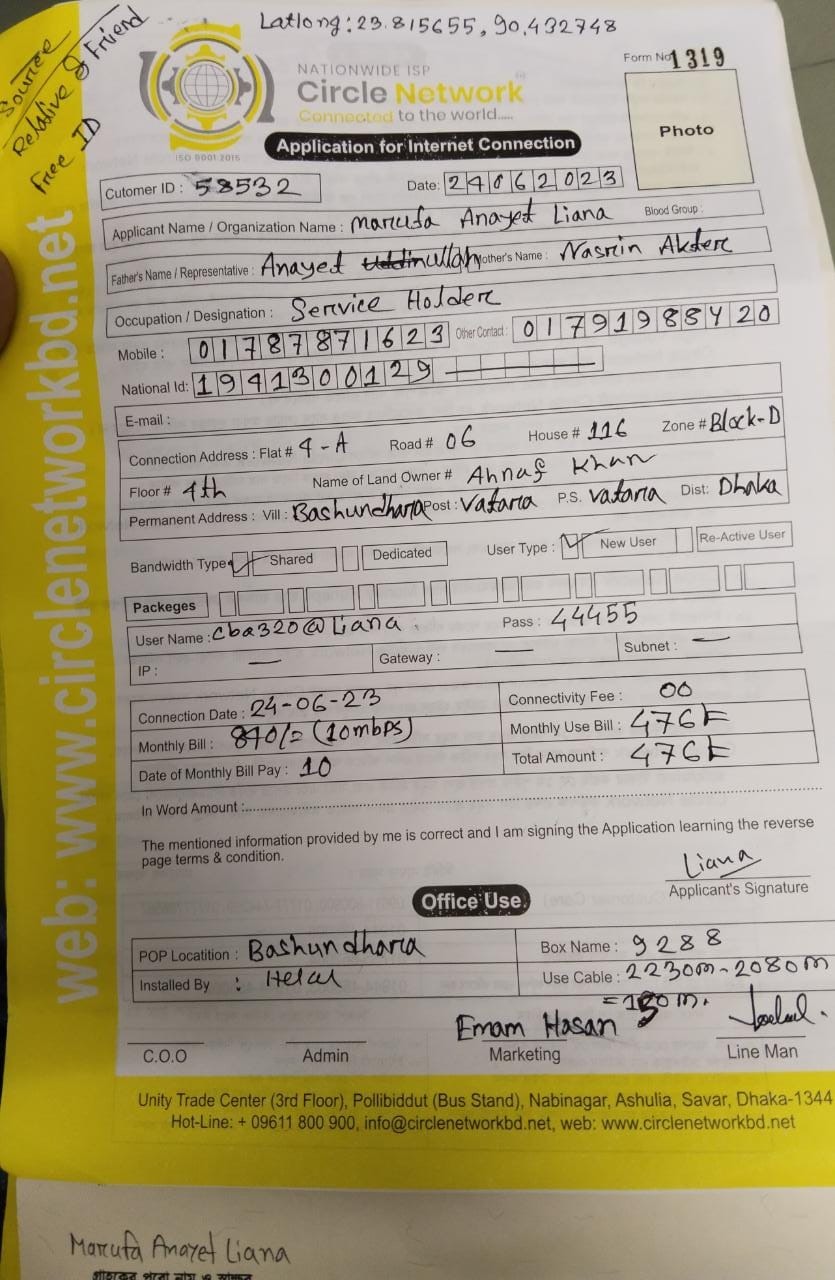 Latlong: 23.815655, 90.432748
Source
Relative & Friend
Free ID
NATIONWIDE ISP
Circle Network
Connected to the world.....
ISO 9001:2015
Form No 1319
Photo
Application for Internet Connection
Cutomer ID : 58532 Date: 24062023
Applicant Name / Organization Name : Marufa Anayet Liana Blood Group :
Father's Name / Representative : Anayet ullah Mother's Name : Nasrin Akter
Occupation / Designation : Service Holder
Mobile : 01787871623 Other Contact : 01791988420
National Id: 1941300129
E-mail :
Connection Address : Flat # 4-A Road # 06 House # 116 Zone # Block-D
Floor # 4th Name of Land Owner # Ahnaf Khan
Permanent Address : Vill : Bashundhara Post : Vatara P.S. Vatara Dist: Dhaka
Bandwidth Type Shared Dedicated User Type : New User Re-Active User
Packeges
User Name : cba320@Liana Pass : 44455
IP : — Gateway : — Subnet : —
Connection Date : 24-06-23 Connectivity Fee : 00
Monthly Bill : 840/= (10mbps) Monthly Use Bill : 476৳
Date of Monthly Bill Pay : 10 Total Amount : 476৳
In Word Amount :
The mentioned information provided by me is correct and I am signing the Application learning the reverse
page terms & condition.
Liana
Applicant's Signature
Office Use
POP Locatition : Bashundhara Box Name : 9288
Installed By : Helal Use Cable : 2230m-2080m
= 150m.
Emam Hasan
C.O.O Admin Marketing Line Man
Unity Trade Center (3rd Floor), Pollibiddut (Bus Stand), Nabinagar, Ashulia, Savar, Dhaka-1344
Hot-Line: + 09611 800 900, info@circlenetworkbd.net, web: www.circlenetworkbd.net
web: www.circlenetworkbd.net
Marufa Anayet Liana